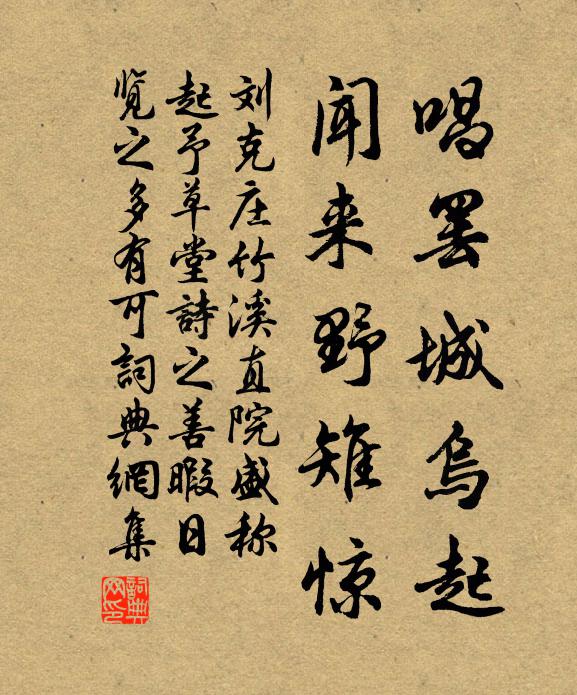 唱罢城乌起
闻来野雉惊
刘克庄竹溪直院盛称
起予草堂詩之善暇日
览之多有可詞典網集
詞典网印